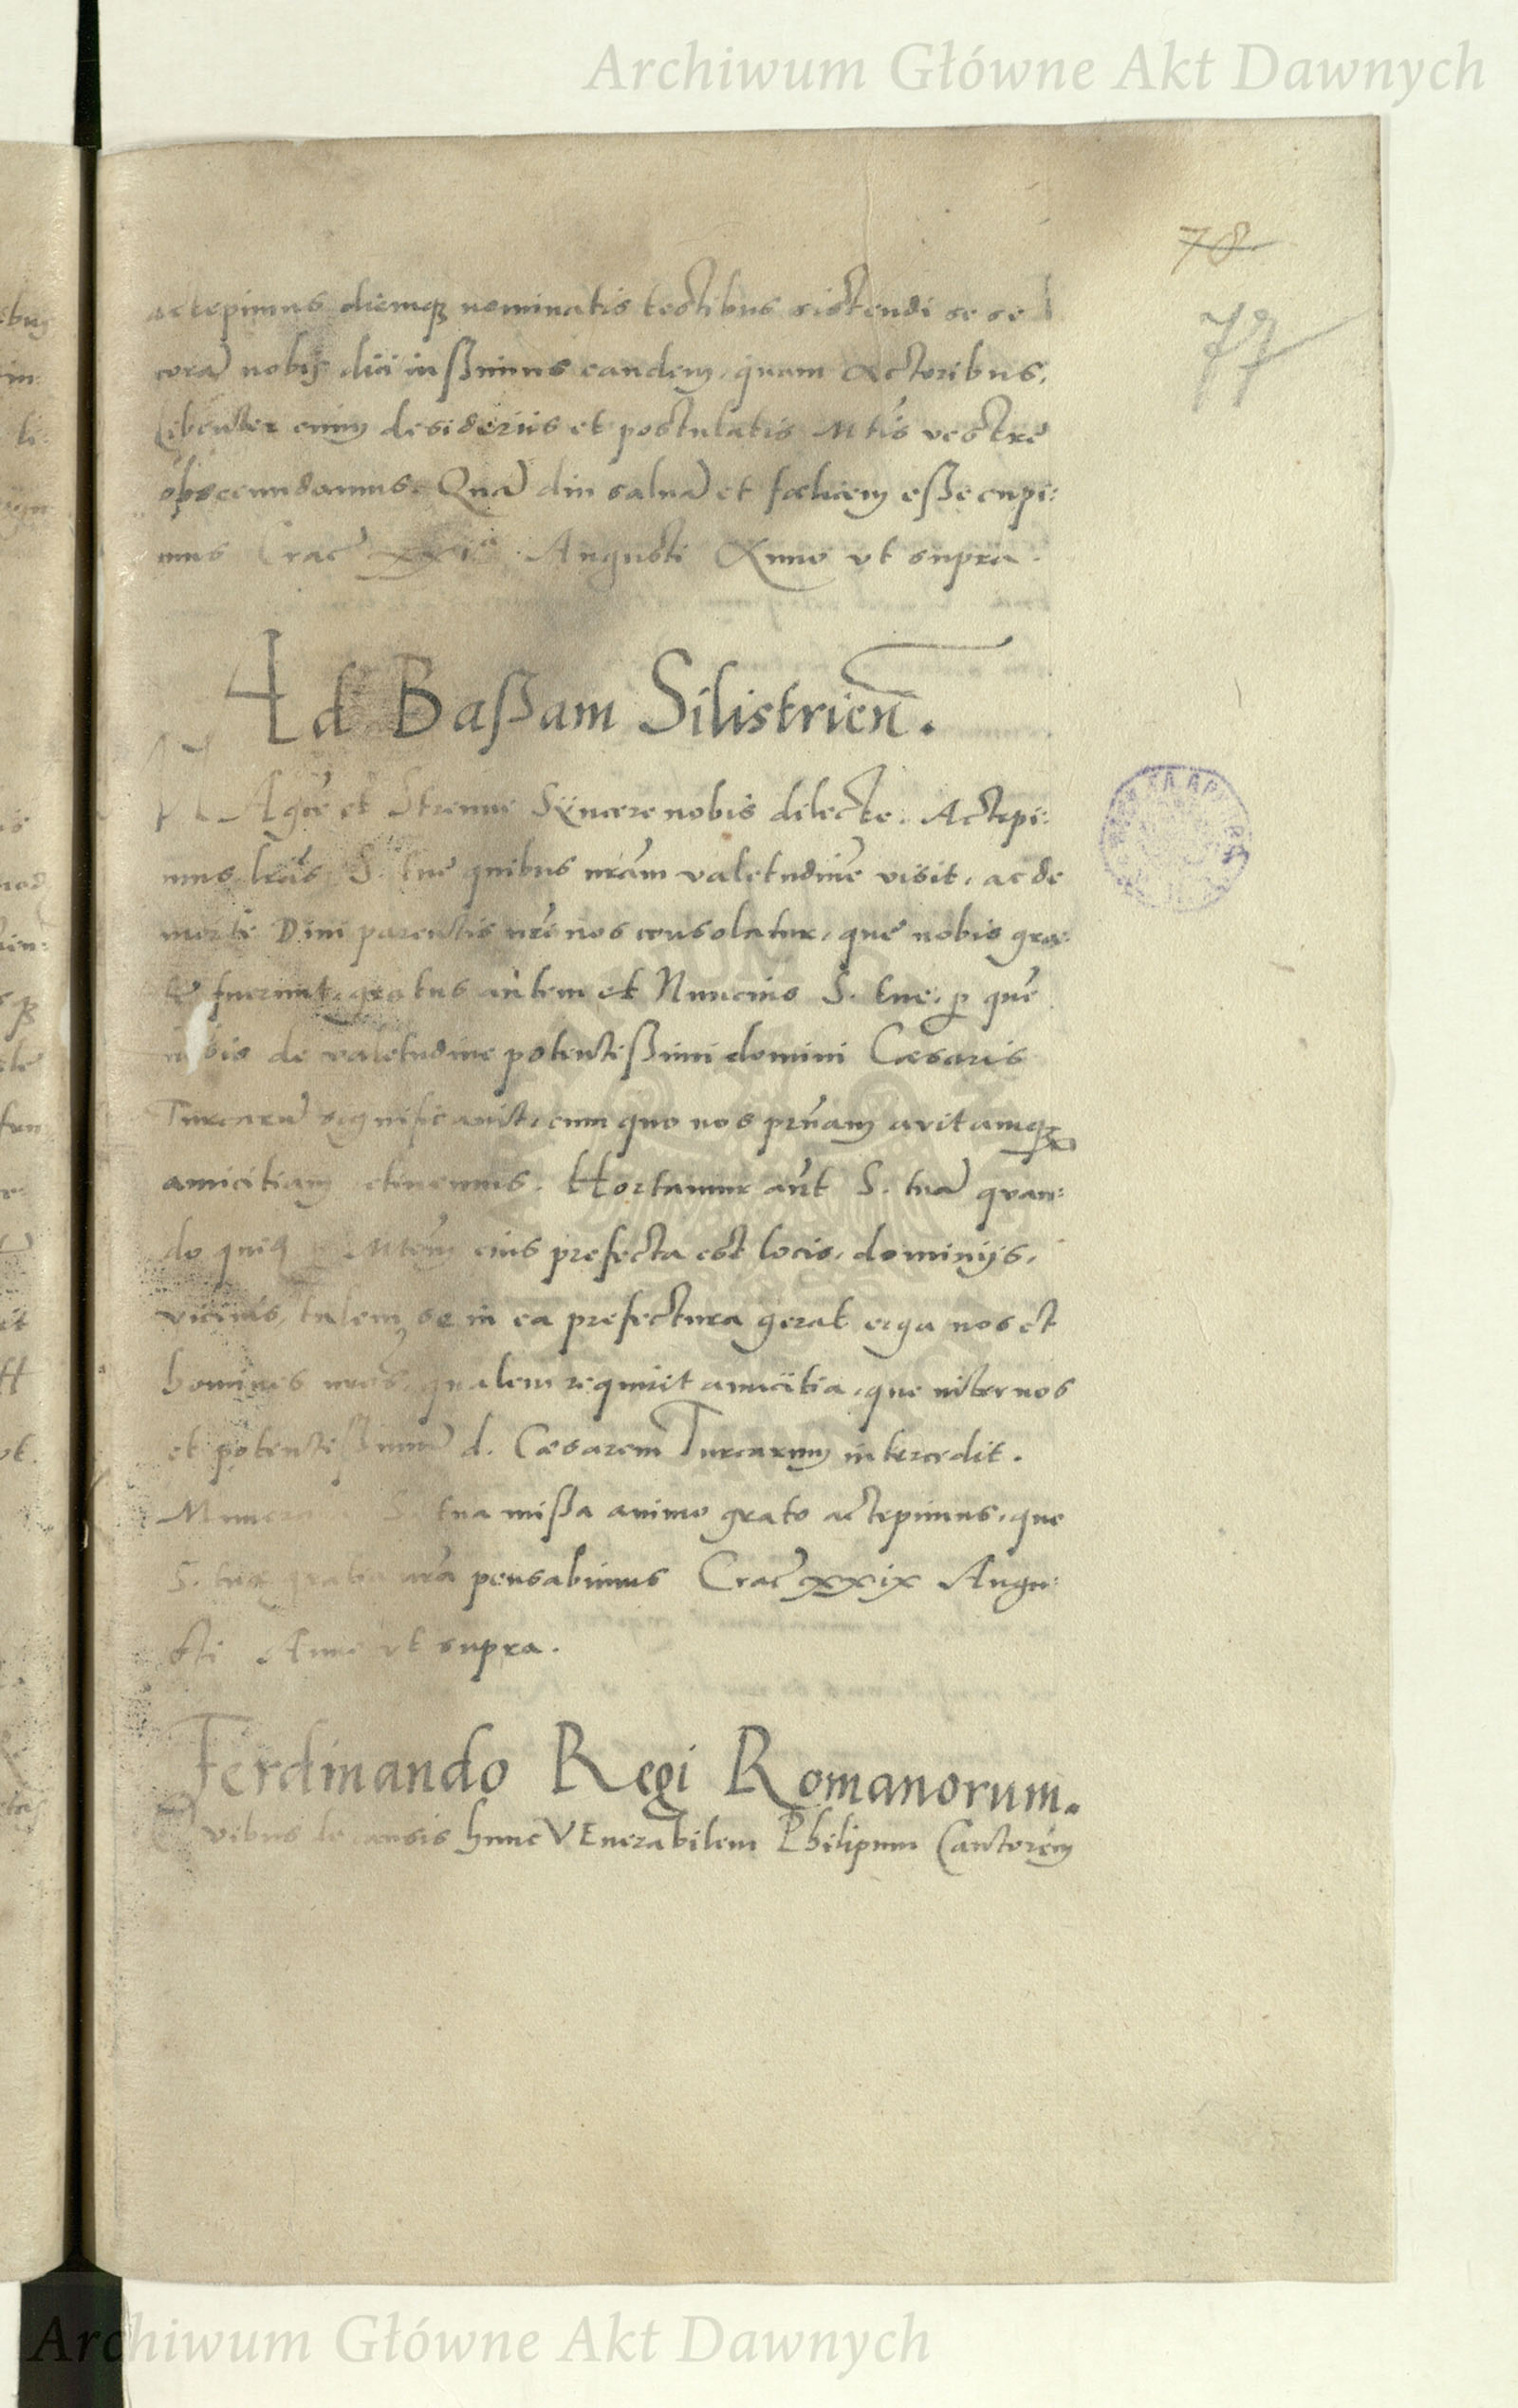 Archiwum Główne Akt Dawnych
78
77
accepimus diemq3 nominatis testibus sistendi se se
corā nobis dici iussimus eandem, quam Actoribus.
Libenter enim desideriis et postulatis Mtis vestrę
obsecundamus. Quā diu saluā et fœlicem eße cupi:
mus Crac̄ xxiᵃ Augusti Anno vt supra.
Ad Baßam Silistrien̄.
MAgcē et Strenue Syncere nobis dilecte. Accepi:
mus lrās S. tuę quibus nrām valetudinē visit, ac de
morte Diui parentis nrī nos consolatur, quę nobis gra:
tę fuerunt, gratus autem et Nuncius S. tuę, p quē
nobis de valetudine potentißimi domini Cæsaris
Turcarū significauit, cum quo nos prnam avitamq3
amicitiam . Hortamur aūt S. tuā quan:
do Mtem eius prefecta est locis, dominijs,
vicinis, talem se in ea prefectura gerat erga nos et
homines nrōs, qualem requirit amicitia, que inter nos
et potentißimū d. Cæsarem Turcarum intercedit.
Munera S. tua mißa animo grato accepimus, que
S. tuę gratia nrā pensabimus Crac̄ xxix Augu:
sti Anno vt supra.
Ferdinando Regi Romanorum.
Qvibus de causis hunc VEnerabilem Philipum Cantorem
Archiwum Główne Akt Dawnych